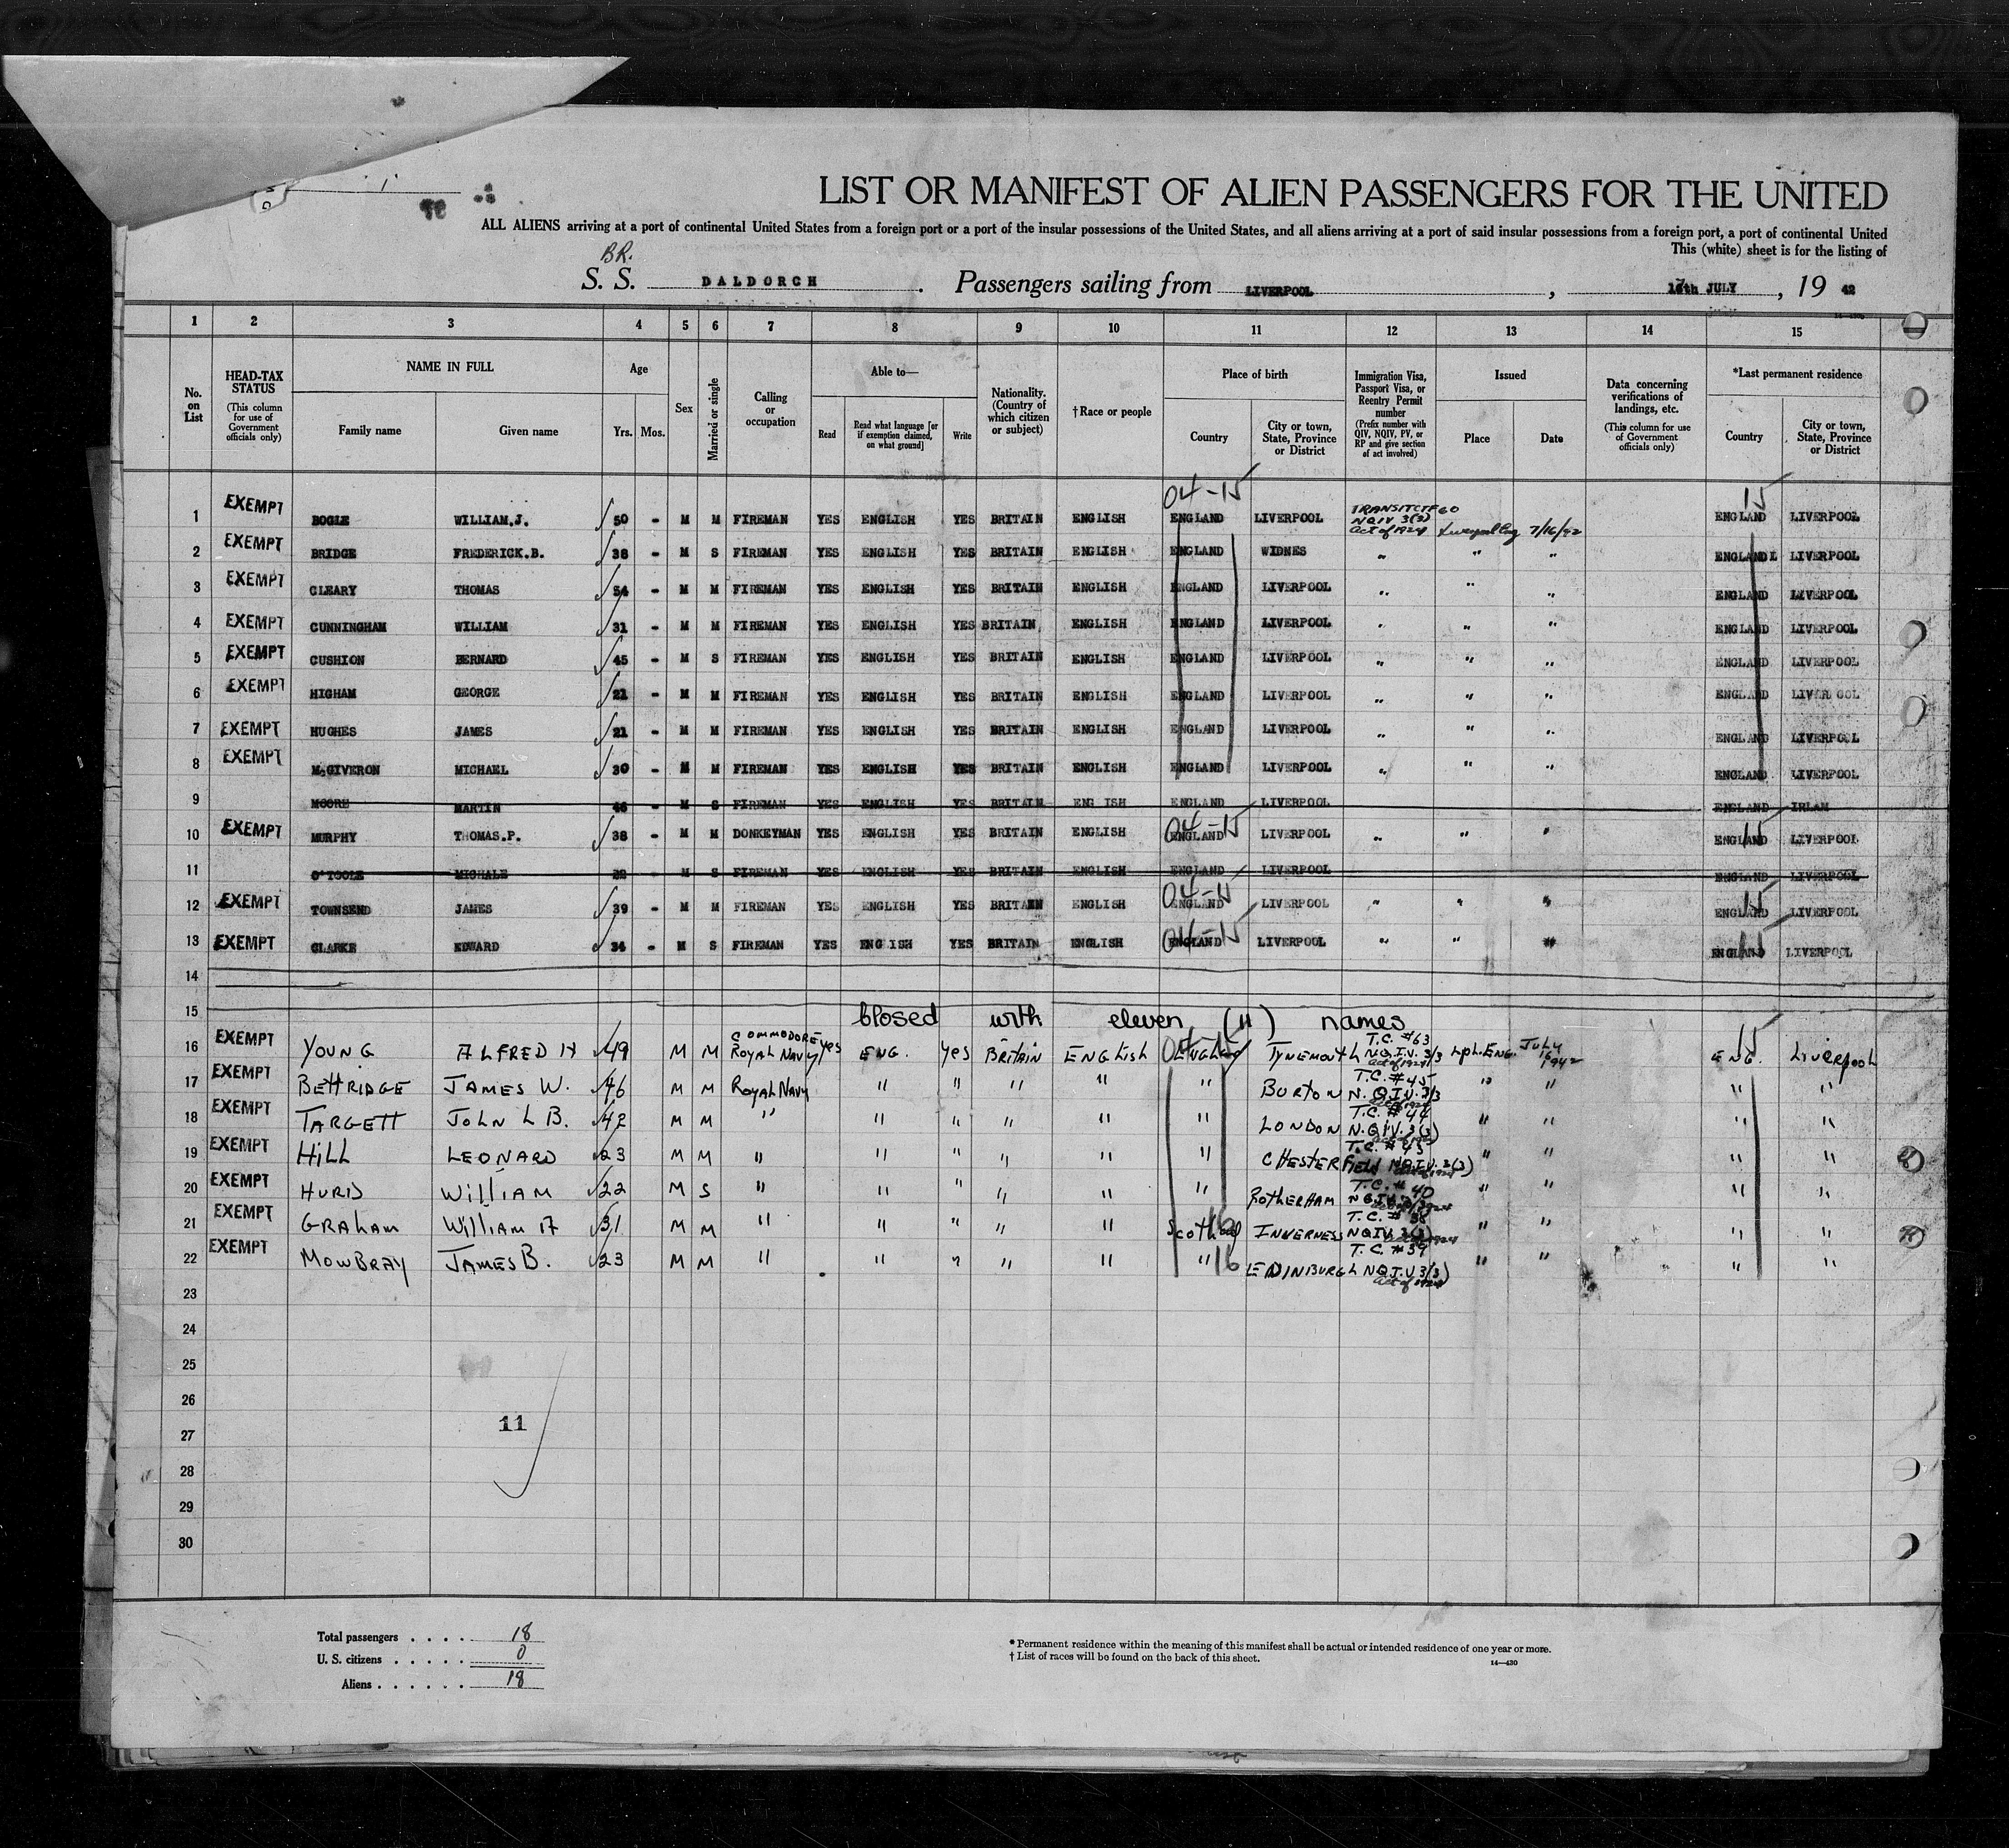 LIST OR MANIFEST OF ALIEN PASSENGERS FOR THE UNITED
ALL ALIENS arriving at a port of continental United States from a foreign port or a port of the insular possessions of the United States, and all aliens arriving at a port of said insular possessions from a foreign port, a port of continental United
This (white) sheet is for the listing of
BR.
S. S. DALDORCH . Passengers sailing from LIVERPOOL , JULY , 19 42
1 2 3 4 5 6 7 8 9 10 11 12 13 14 15
No. on List
HEAD-TAX STATUS (This column for use of Government officials only)
NAME IN FULL
Family name Given name
Age
Yrs. Mos.
Sex
Married or single
Calling or occupation
Able to—
Read
Read what language [or if exemption claimed, on what ground]
Write
Nationality. (Country of which citizen or subject)
† Race or people
Place of birth
Country
City or town, State, Province or District
Immigration Visa, Passport Visa, or Reentry Permit number (Prefix number with QIV, NQIV, PV, or RP and give section of act involved)
Issued
Place Date
Data concerning verifications of landings, etc. (This column for use of Government officials only)
*Last permanent residence
Country
City or town, State, Province or District
04-15 15
1 EXEMPT BOGLE WILLIAM.J. 50 - M M FIREMAN YES ENGLISH YES BRITAIN ENGLISH ENGLAND LIVERPOOL NQIV 3(3) Act of 1924 7/16/42 ENGLAND LIVERPOOL
2 EXEMPT BRIDGE FREDERICK.B. 38 - M S FIREMAN YES ENGLISH YES BRITAIN ENGLISH ENGLAND WIDNES " " " ENGLAND L LIVERPOOL
3 EXEMPT CLEARY THOMAS 54 - M M FIREMAN YES ENGLISH YES BRITAIN ENGLISH ENGLAND LIVERPOOL " " " ENGLAND LIVERPOOL
4 EXEMPT CUNNINGHAM WILLIAM 31 - M M FIREMAN YES ENGLISH YES BRITAIN ENGLISH ENGLAND LIVERPOOL " " " ENGLAND LIVERPOOL
5 EXEMPT CUSHION BERNARD 45 - M S FIREMAN YES ENGLISH YES BRITAIN ENGLISH ENGLAND LIVERPOOL " " " ENGLAND LIVERPOOL
6 EXEMPT HIGHAM GEORGE 21 - M M FIREMAN YES ENGLISH YES BRITAIN ENGLISH ENGLAND LIVERPOOL " " " ENGLAND LIVER OOL
7 EXEMPT HUGHES JAMES 21 - M M FIREMAN YES ENGLISH YES BRITAIN ENGLISH ENGLAND LIVERPOOL " " " ENGLAND LIVERPOOL
8 EXEMPT McGIVERON MICHAEL 30 - M M FIREMAN YES ENGLISH YES BRITAIN ENGLISH ENGLAND LIVERPOOL " " " ENGLAND LIVERPOOL
9 MOORE MARTIN 46 - M S FIREMAN YES ENGLISH YES BRITAIN ENG ISH ENGLAND LIVERPOOL ENGLAND IRLAM
10 EXEMPT MURPHY THOMAS.P. 38 - M M DONKEYMAN YES ENGLISH YES BRITAIN ENGLISH 04-15 ENGLAND LIVERPOOL " " " ENGLAND 15 LIVERPOOL
11 O'TOOLE MICHALE 22 - M S FIREMAN YES ENGLISH YES BRITAIN ENGLISH ENGLAND LIVERPOOL ENGLAND LIVERPOOL
12 EXEMPT TOWNSEND JAMES 39 - M M FIREMAN YES ENGLISH YES BRITAIN ENGLISH 04-15 ENGLAND LIVERPOOL " " " ENGLAND 15 LIVERPOOL
13 EXEMPT CLARKE EDWARD 34 - M S FIREMAN YES ENG ISH YES BRITAIN ENGLISH 04-15 ENGLAND LIVERPOOL " " " ENGLAND 15 LIVERPOOL
14
15 Closed with eleven (11) names
16 EXEMPT YOUNG ALFRED H 49 M M COMMODORE ROYAL NAVY yes ENG. yes BRITAIN ENGLISH ENGLAND TYNEMOUTH T.C. #63 N.Q.I.V. 3/3 Act of 1924 Lpl. ENG. July 16 1942 ENG. 15 Liverpool
17 EXEMPT BETTRIDGE JAMES W. 46 M M ROYAL NAVY " " " " " BURTON T.C. #45 N.Q.I.V. 3/3 " " " "
18 EXEMPT TARGETT JOHN L B. 42 M M " " " " " " LONDON T.C. #44 N.Q.I.V. 3(3) " " " "
19 EXEMPT HILL LEONARD 23 M M " " " " " " CHESTERFIELD T.C. #43 N.Q.I.V. 3(3) " " " "
20 EXEMPT WILLIAM 22 M S " " " " " " ROTHERHAM T.C. #40 N.Q.I.V. " " " "
21 EXEMPT GRAHAM William A 31 M M " " " " " Scotland 16 INVERNESS T.C. #38 NQIV 3(3) " " " "
22 EXEMPT MOWBRAY JAMES B. 23 M M " " " " " " 16 EDINBURGH T.C. #39 N.Q.I.V 3/3) Act of 1924 " " " "
23
24
25
26
27 11
28
29
30
Total passengers . . . . 18
U. S. citizens . . . . . 0
Aliens . . . . . . 18
* Permanent residence within the meaning of this manifest shall be actual or intended residence of one year or more.
† List of races will be found on the back of this sheet.
14—430